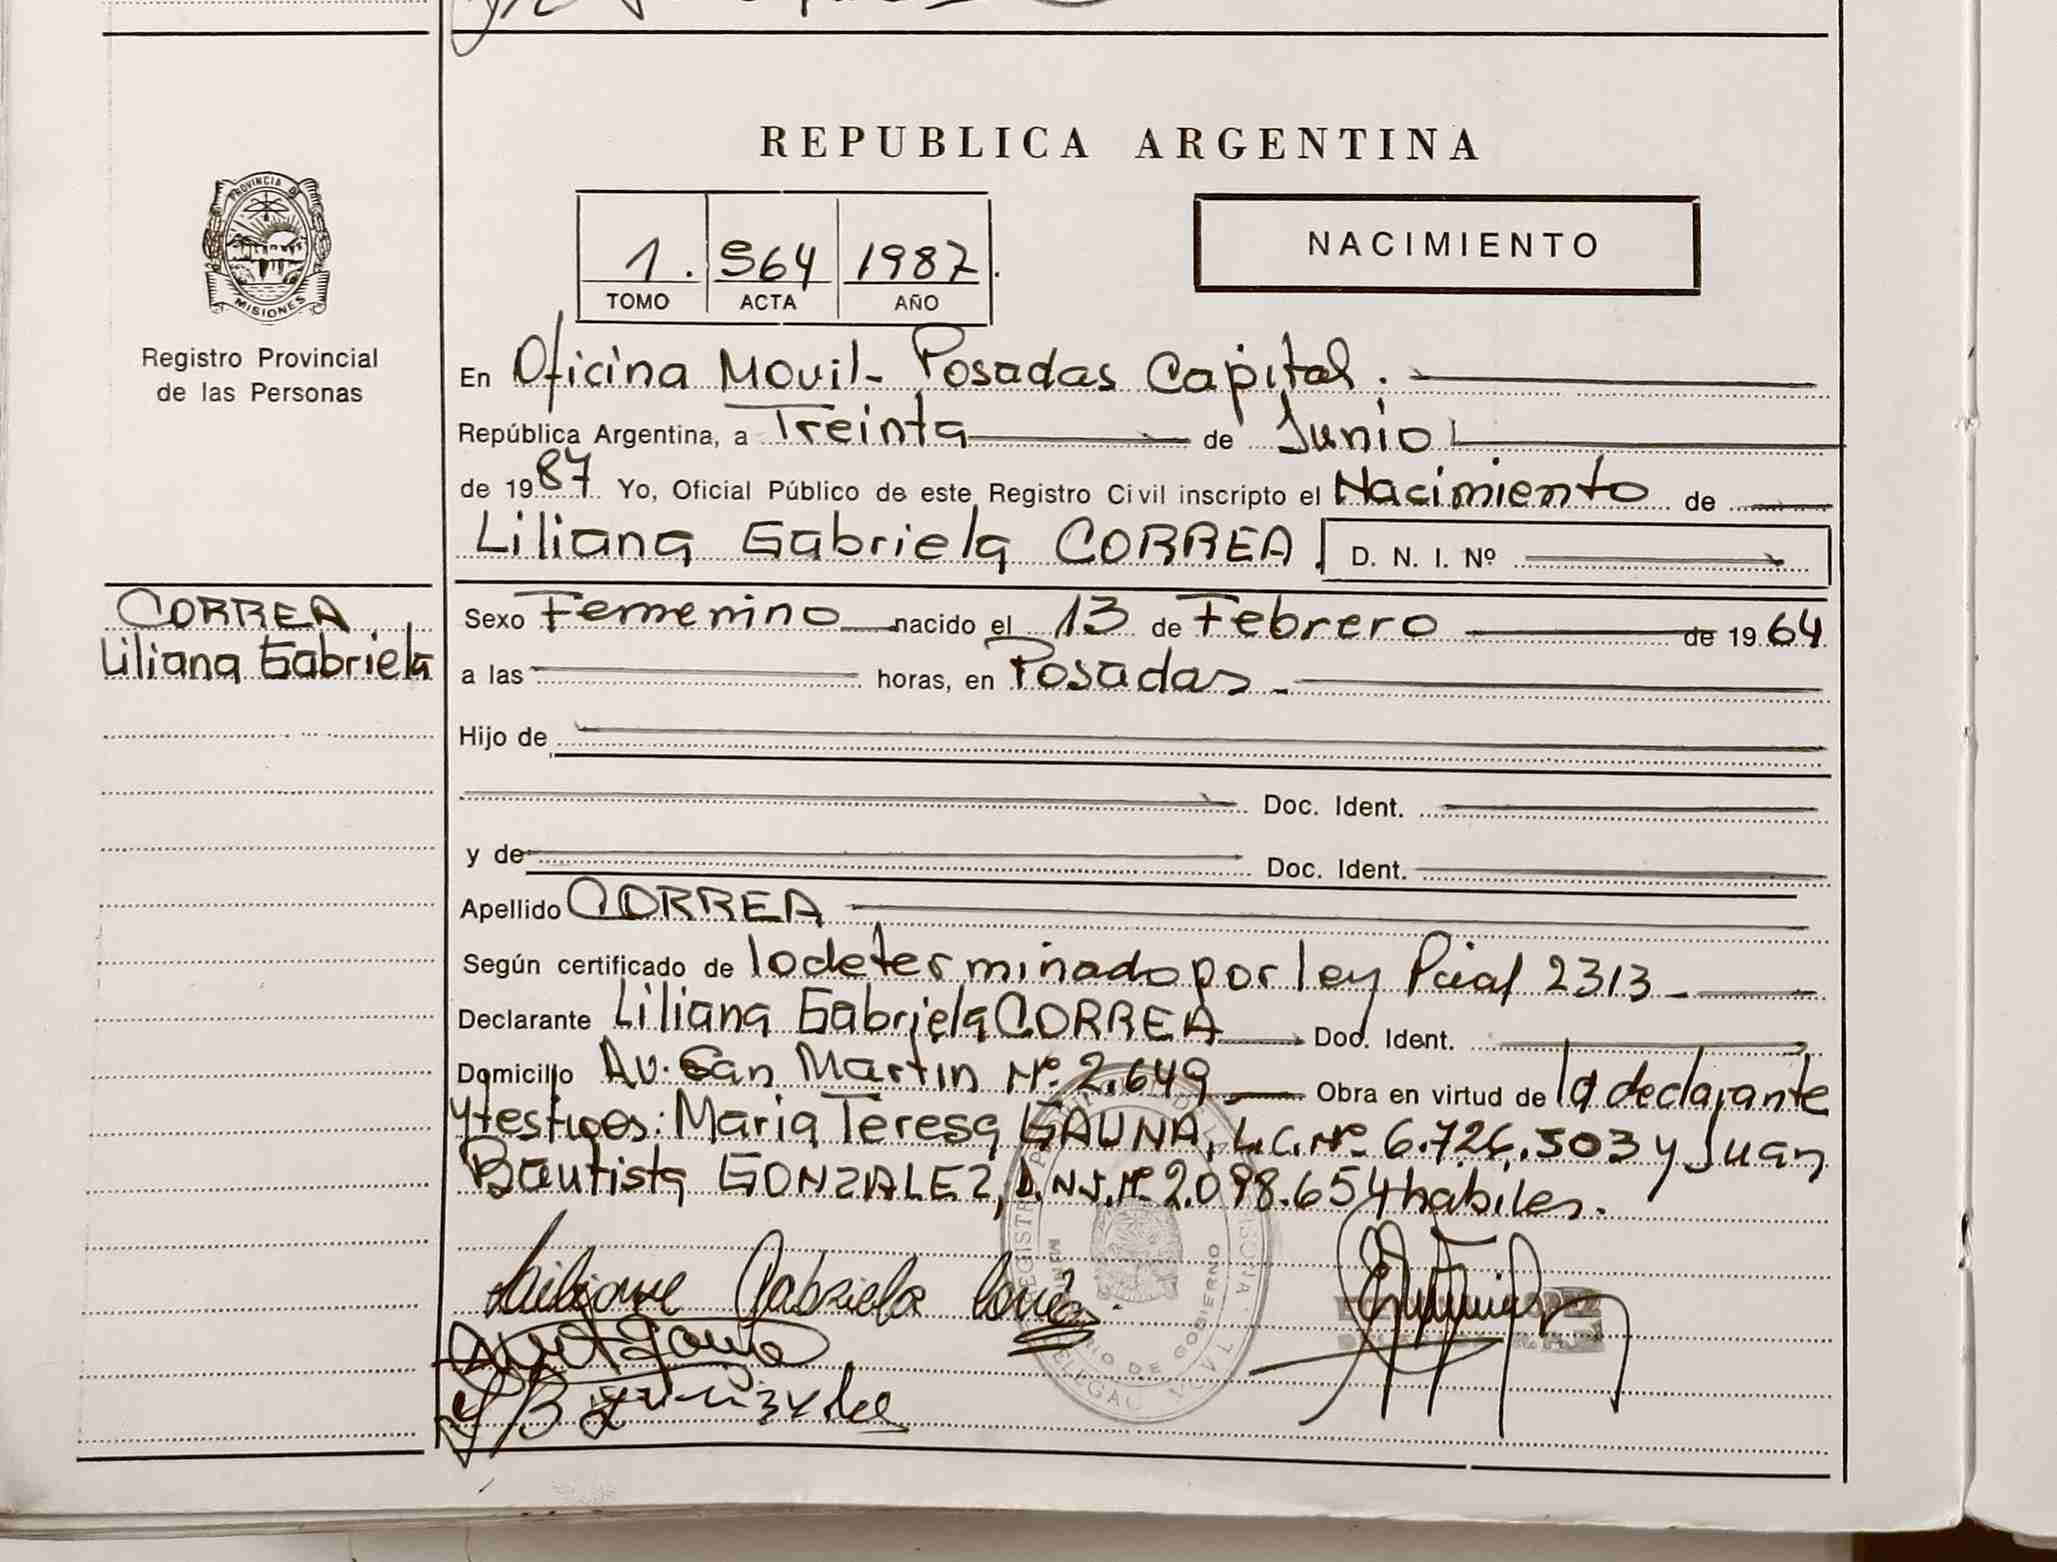 REPUBLICA ARGENTINA
PROVINCIA DE
MISIONES
Registro Provincial
de las Personas
1. 564 1987.
TOMO ACTA AÑO
NACIMIENTO
En Oficina Movil- Posadas Capital.
República Argentina, a Treinta de Junio
de 1987 Yo, Oficial Público de este Registro Civil inscripto el Nacimiento de
Liliana Gabriela CORREA D. N. I. Nº
CORREA
Liliana Gabriela
Sexo Femenino nacido el 13 de Febrero de 1964
a las horas, en Posadas-
Hijo de
Doc. Ident.
y de Doc. Ident.
Apellido CORREA
Según certificado de lo determinado por ley Pcial 2313-
Declarante Liliana Gabriela CORREA Doc. Ident.
Domicilio Av. San Martin Nº 2.649 Obra en virtud de la declarante
y testigos: Maria Teresa GAUNA, L.C. Nº 6.726.503 y Juan
Bautista GONZALEZ, D.N.I. Nº 2.098.654 habiles.
Liliana Gabriela Correa